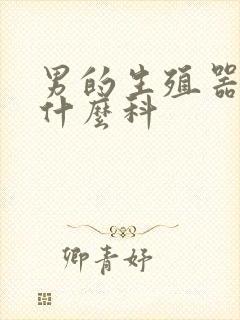 男的生殖器
什麼科
卿青妤